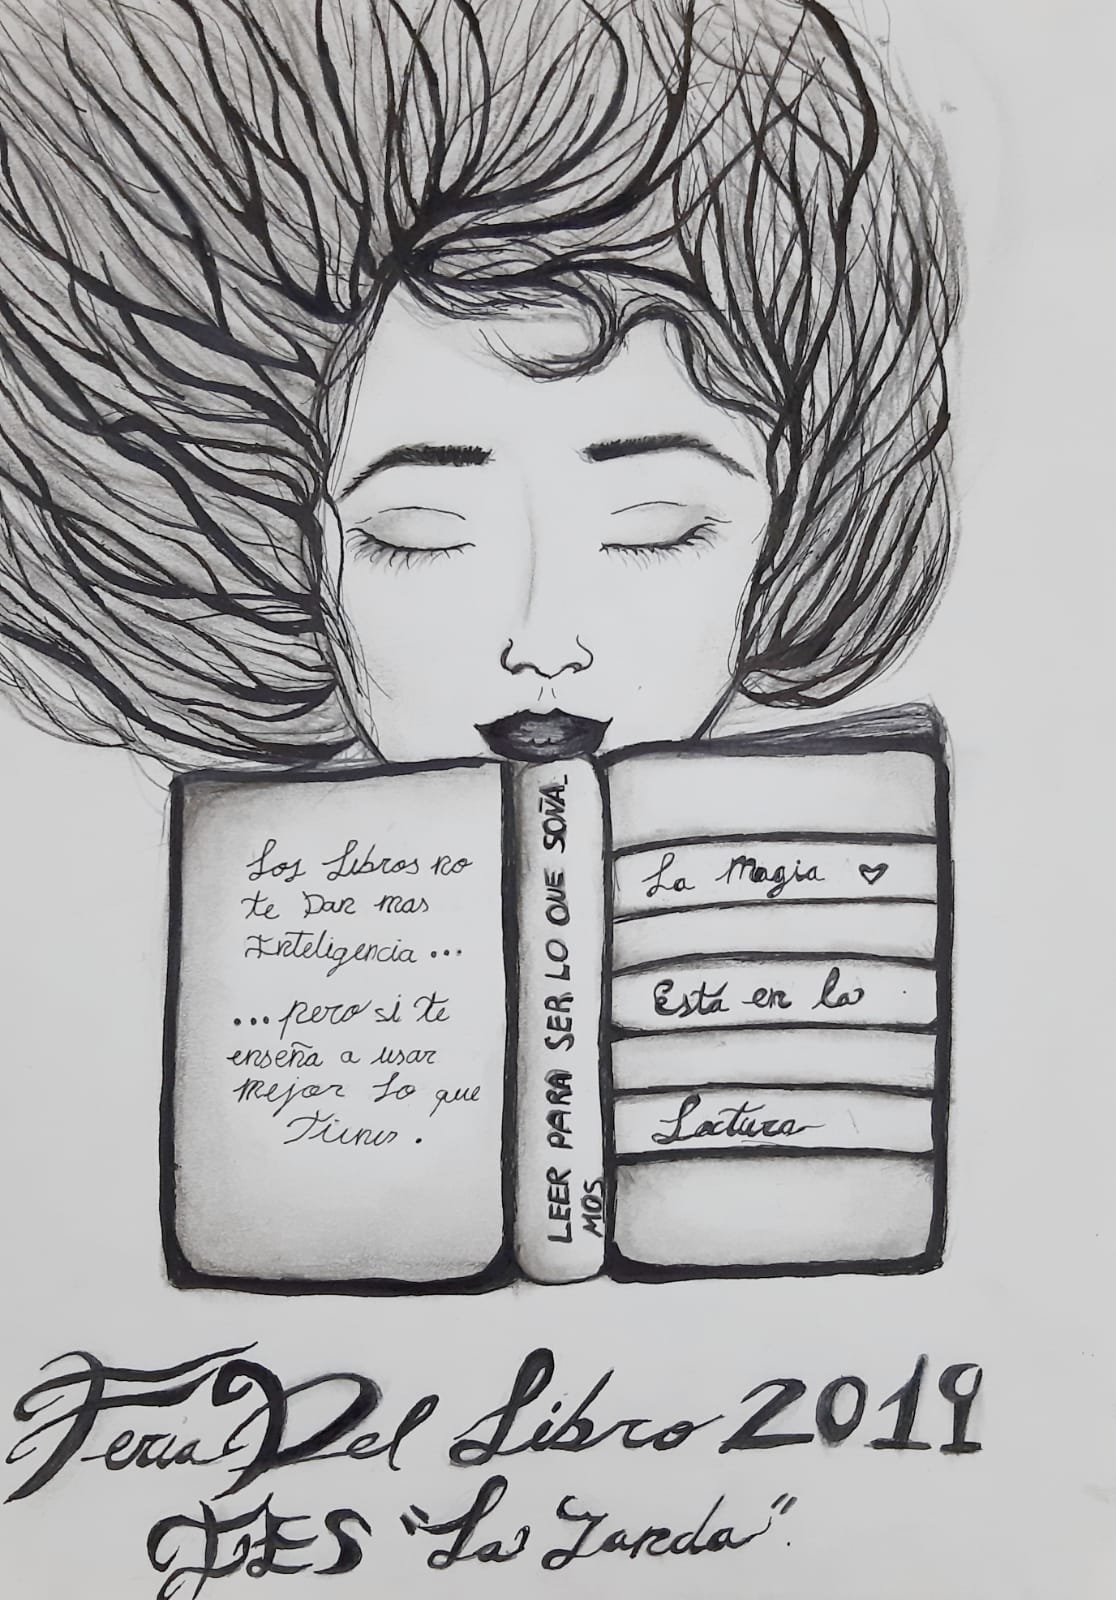 Los Libros no
te Dan mas
Inteligencia ...
... pero si te
enseña a usar
Mejor Lo que
Tienes .
LEER PARA SER LO QUE SOÑA_
MOS
La Magia ♡
Está en la
Lectura
Feria Del Libro 2019
IES "La Janda".